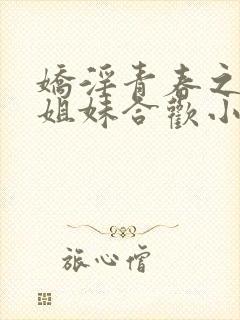 嬌淫青春之
姐妹合歡小
旅心僧